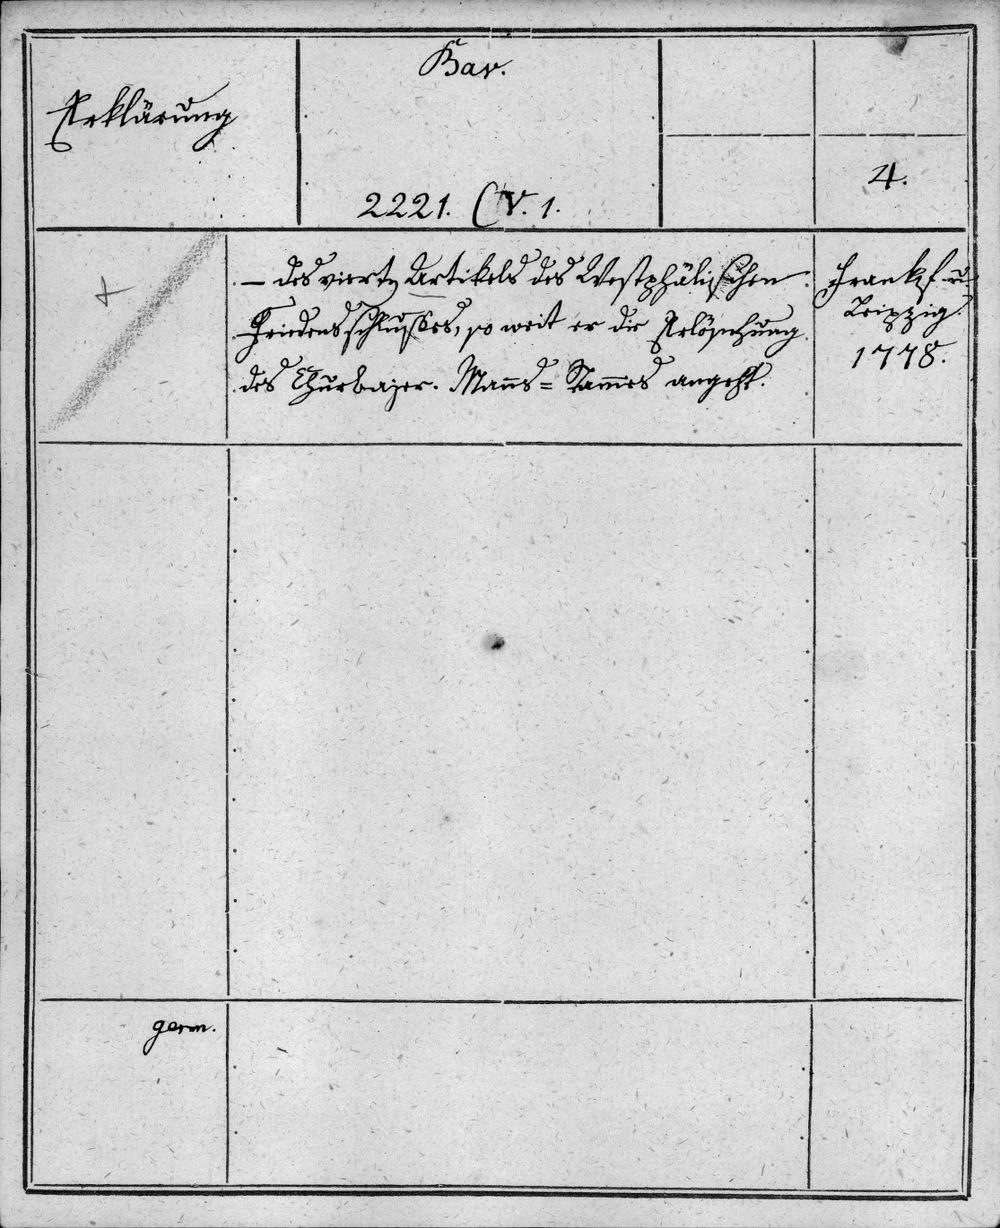 Bav.
Erklärung
4.
2221. (V. 1.
+
— des vierten Artikels des Westphälischen
Friedensschlusses, so weit er die Erlöschung
des Churbajer. Mañs-Stam̃es angeht.
Frankf. u.
Leipzig.
1778.
germ.